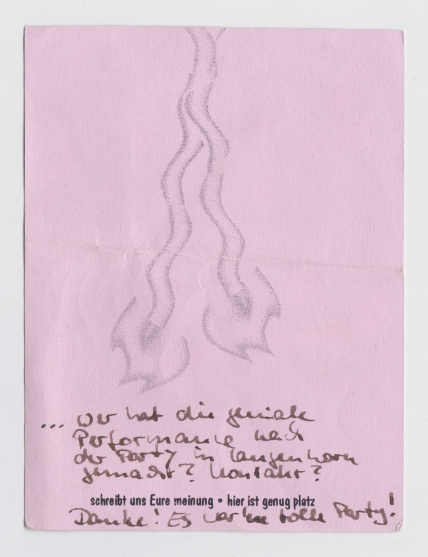 ... wer hat die geniale
Performance nach
der Party in Langenhorn
gemacht? Kontakt?
schreibt uns Eure meinung • hier ist genug platz
Danke! Es war 'ne tolle Party!